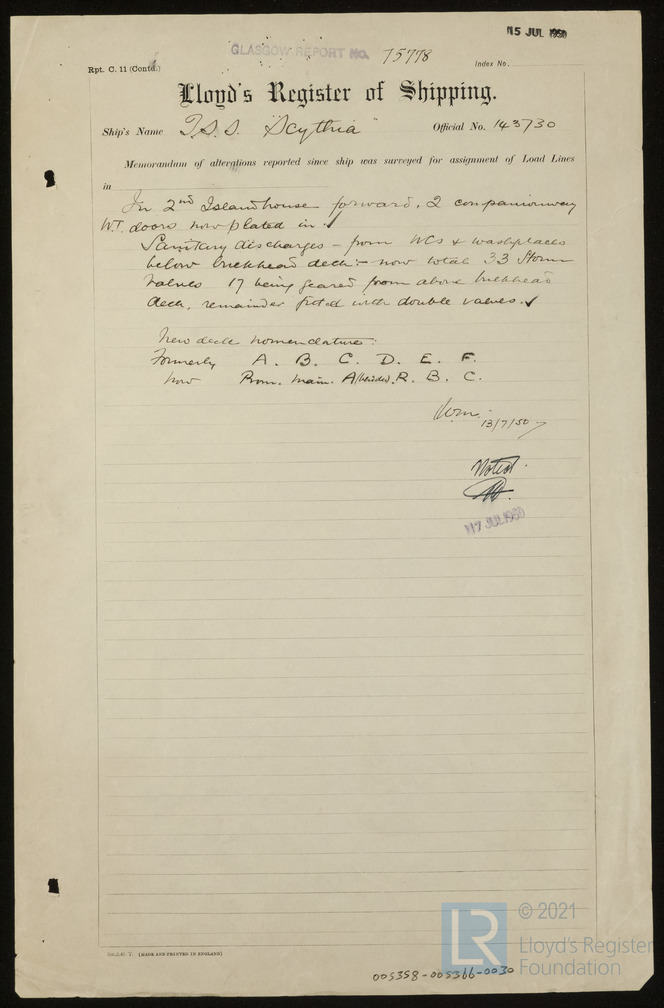 15 JUL 1950
GLASGOW REPORT No. 75778
Rpt. C. 11 (Contd.)
Index No.
Lloyd's Register of Shipping.
Ship's Name T.S.S. "Scythia" Official No. 143730
Memorandum of alterations reported since ship was surveyed for assignment of Load Lines
in
In 2nd Islandhouse forward, 2 companionway
W.T. doors now plated in. ✓
Sanitary discharges – from WCs & washplaces
below bulkhead deck:– now total 33 Storm
Valves 17 being geared from above bulkhead
deck, remainder fitted with double valves. ✓
New deck nomenclature:
Formerly A. B. C. D. E. F.
Now Prom. Main. A(bhd dk). R. B. C.
13/7/50
Noted.
17 JUL 1950
(MADE AND PRINTED IN ENGLAND)
LR
© 2021
Lloyd's Register
Foundation
005358-005366-0030